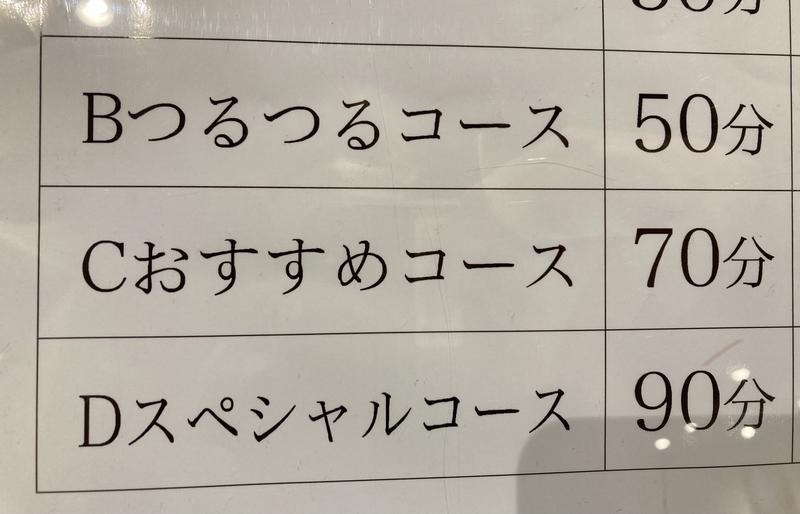 Bつるつるコース 50分
Cおすすめコース 70分
Dスペシャルコース 90分